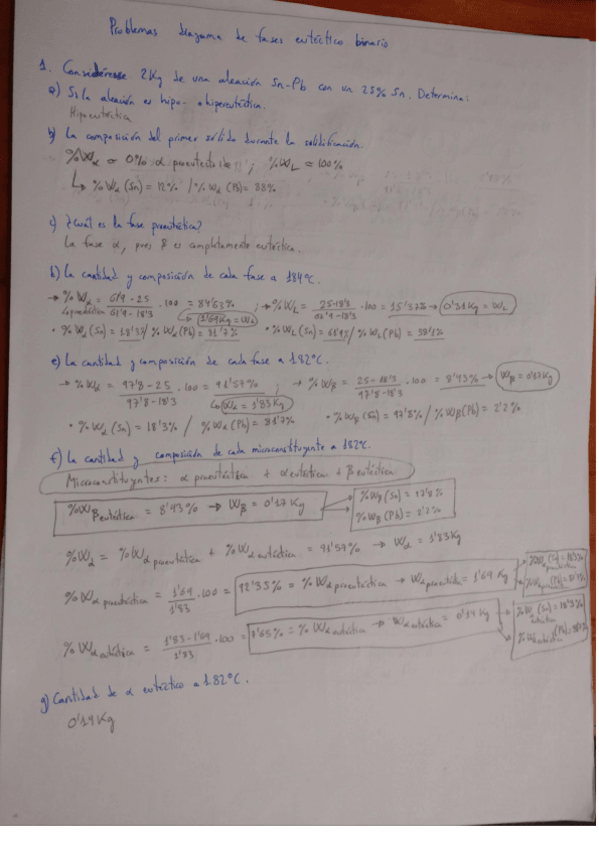 Problemas diagrama de fases eutéctico binario
1. Considérese 2Kg de una aleación Sn-Pb con un 25% Sn. Determina:
a) Si la aleación es hipo- o hipereutéctica.
Hipoeutéctica
b) La composición del primer sólido durante la solidificación.
%Wα ≈ 0% α proeutectoide ; %WL ≈ 100%
↳ %Wα(Sn) = 12% / %Wα(Pb) = 88%
c) ¿Cuál es la fase proeutéctica?
La fase α, pues β es completamente eutéctica.
d) La cantidad y composición de cada fase a 184ºC.
→ %Wα = 61'9 - 25 / 61'9 - 18'3 · 100 = 84'63% ; → %WL = 25 - 18'3 / 61'9 - 18'3 · 100 = 15'37% → 0'31Kg = WL
↳ 1'69Kg = Wα
• %Wα(Sn) = 18'3% / %Wα(Pb) = 81'7% • %WL(Sn) = / %WL(Pb) =
e) La cantidad y composición de cada fase a 182ºC.
→ %Wα = 97'8 - 25 / 97'8 - 18'3 · 100 = 91'57% ; → %Wβ = 25 - 18'3 / 97'8 - 18'3 · 100 = 8'43% → Wβ = 0'17Kg
↳ Wα = 1'83Kg
• %Wα(Sn) = 18'3% / %Wα(Pb) = 81'7% • %Wβ(Sn) = 97'8% / %Wβ(Pb) = 2'2%
f) La cantidad y composición de cada microconstituyente a 182ºC.
Microconstituyentes: α proeutéctica + α eutéctica + β eutéctica
%Wβ eutéctica = 8'43% → Wβ = 0'17Kg → %Wβ(Sn) = 97'8%
→ %Wβ(Pb) = 2'2%
%Wα = %Wα proeutéctica + %Wα eutéctica = 91'57% → Wα = 1'83Kg
%Wα proeutéctica = 1'69 / 1'83 · 100 = 92'35% = %Wα proeutéctica → Wproeutéctica = 1'69Kg
%Wα eutéctica = 1'83 - 1'69 / 1'83 · 100 = 7'65% = %Wα eutéctica → Wα eutéctica = 0'14Kg → %Wα(Sn) = 18'3%
g) Cantidad de α eutéctico a 182ºC.
0'14Kg